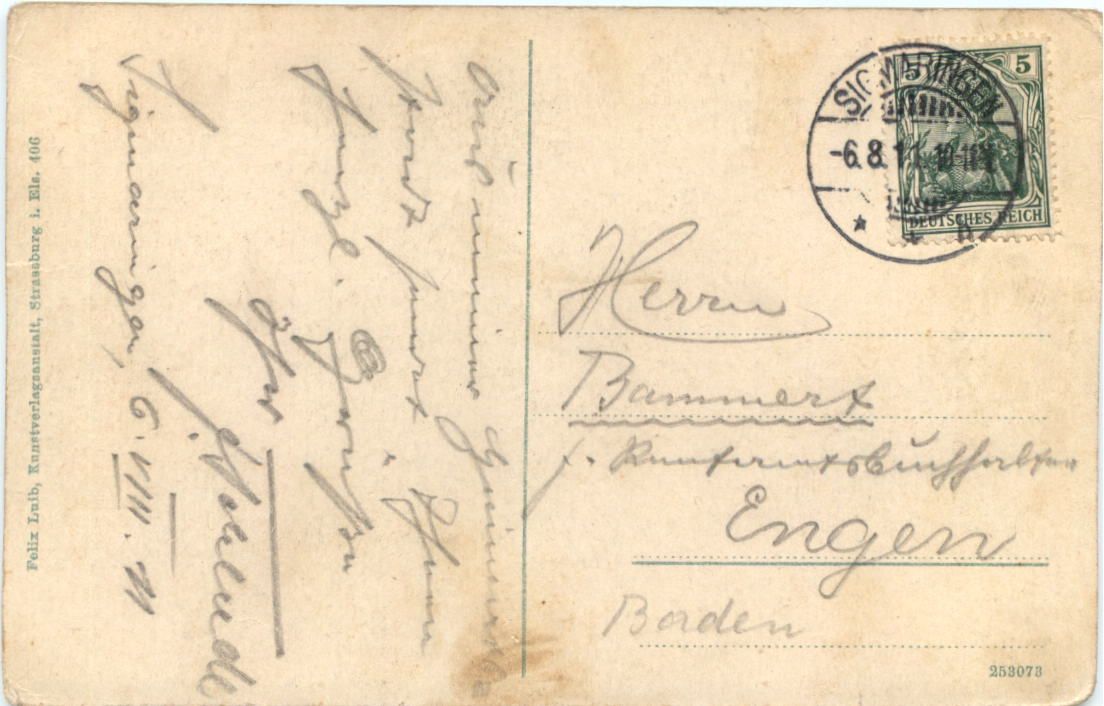 Aus meiner
sendet Ihnen
herzl. Grüße
Ihr
Sigmaringen, 6. VIII. 11
Felix Luib, Kunstverlagsanstalt, Strassburg i. Els. 406
5 5
DEUTSCHES REICH
SIGMARINGEN
-6.8.11.10-11V
Herrn
Bammert
Rentamtsbuchhalter
Engen
Baden
253073